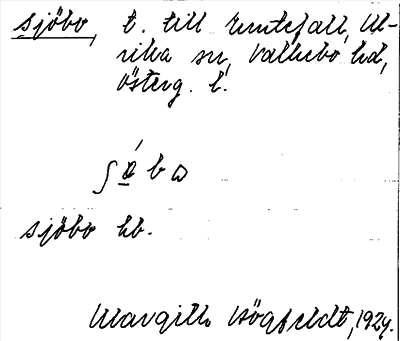 Sjöbo, t. till Rumtefall, Ul-
rika sn, Valkebo hd,
Österg. l.
sjöbo hb.
Margit Högfeldt, 1924.